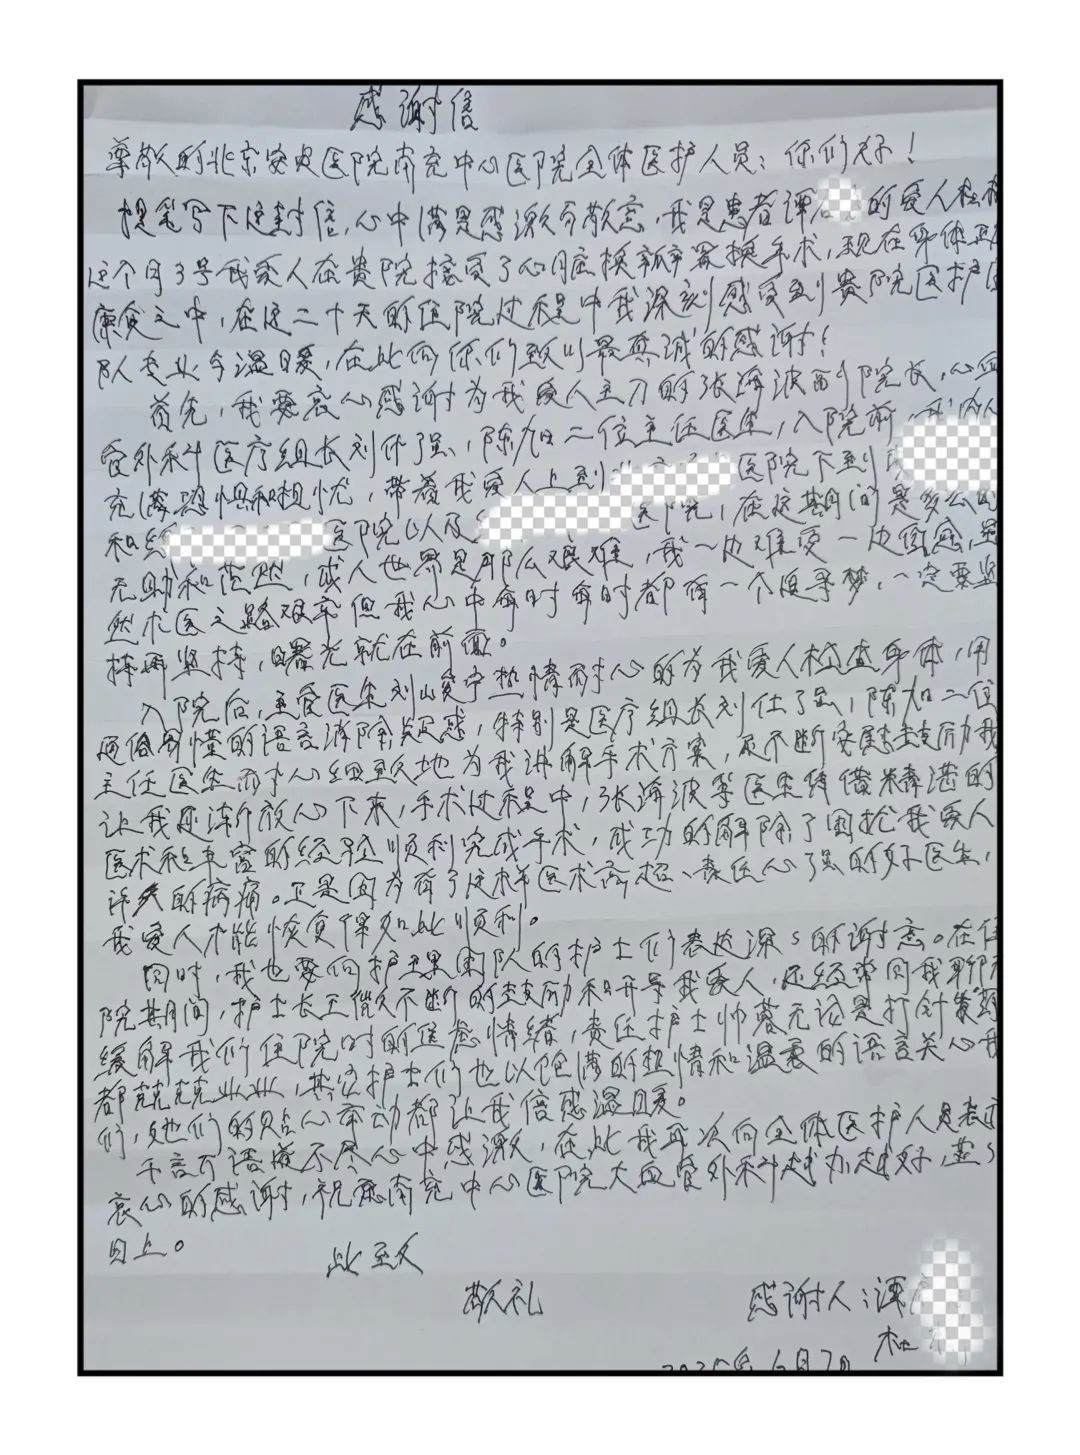 感谢信
尊敬的北京安贞医院南充中心医院全体医护人员：你们好！
提笔写下这封信，心中满是感激与敬意，我是患者谭 的爱人
这个月3号我爱人在贵院接受了心脏换瓣置换手术，现在身体正在
康复之中，在这二十天的住院过程中我深刻感受到贵院医护团
队专业与温暖，在此向你们致以最真诚的感谢！
首先，我要衷心感谢为我爱人主刀的张海波副院长，心血
管外科医疗组长刘仕强、陈加二位主任医生，入院前，
充满恐惧和担忧，带着我爱人上到 医院下到
和 医院以及 医院，在这期间是多么的
无助和茫然，成人世界是那么艰难，我一边难受一边
然求医之路艰辛但我心中每时每时都有一个追寻梦，一定要坚
持再坚持，曙光就在前面。
入院后，主管医生刘峻宁热情耐心的为我爱人检查身体，用
通俗易懂的语言消除疑惑，特别是医疗组长刘仕强，陈加二位
主任医生耐心细致地为我讲解手术方案，及不断安慰鼓励我
让我逐渐放心下来，手术过程中，张海波等医生凭借精湛的
医术和丰富的经验顺利完成手术，成功的解除了困扰我爱人
许久的病痛。正是因为有了这样医术高超、责任心强的好医生，
我爱人才能恢复得如此顺利。
同时，我也要向护理团队的护士们表达深深的谢意。在住
院期间，护士长王 不断的鼓励和开导我爱人，还经常同我聊天
缓解我们住院时的焦虑情绪，责任护士帅蓉无论是打针发药
都兢兢业业，其它护士们也以饱满的热情和温柔的语言关心我
们，她们的贴心举动都让我倍感温暖。
千言万语道不尽心中感激，在此我再次向全体医护人员表示
衷心的感谢，祝愿南充中心医院大血管外科越办越好，蒸蒸
日上。
此致
敬礼
感谢人：谭
2025年6月7日